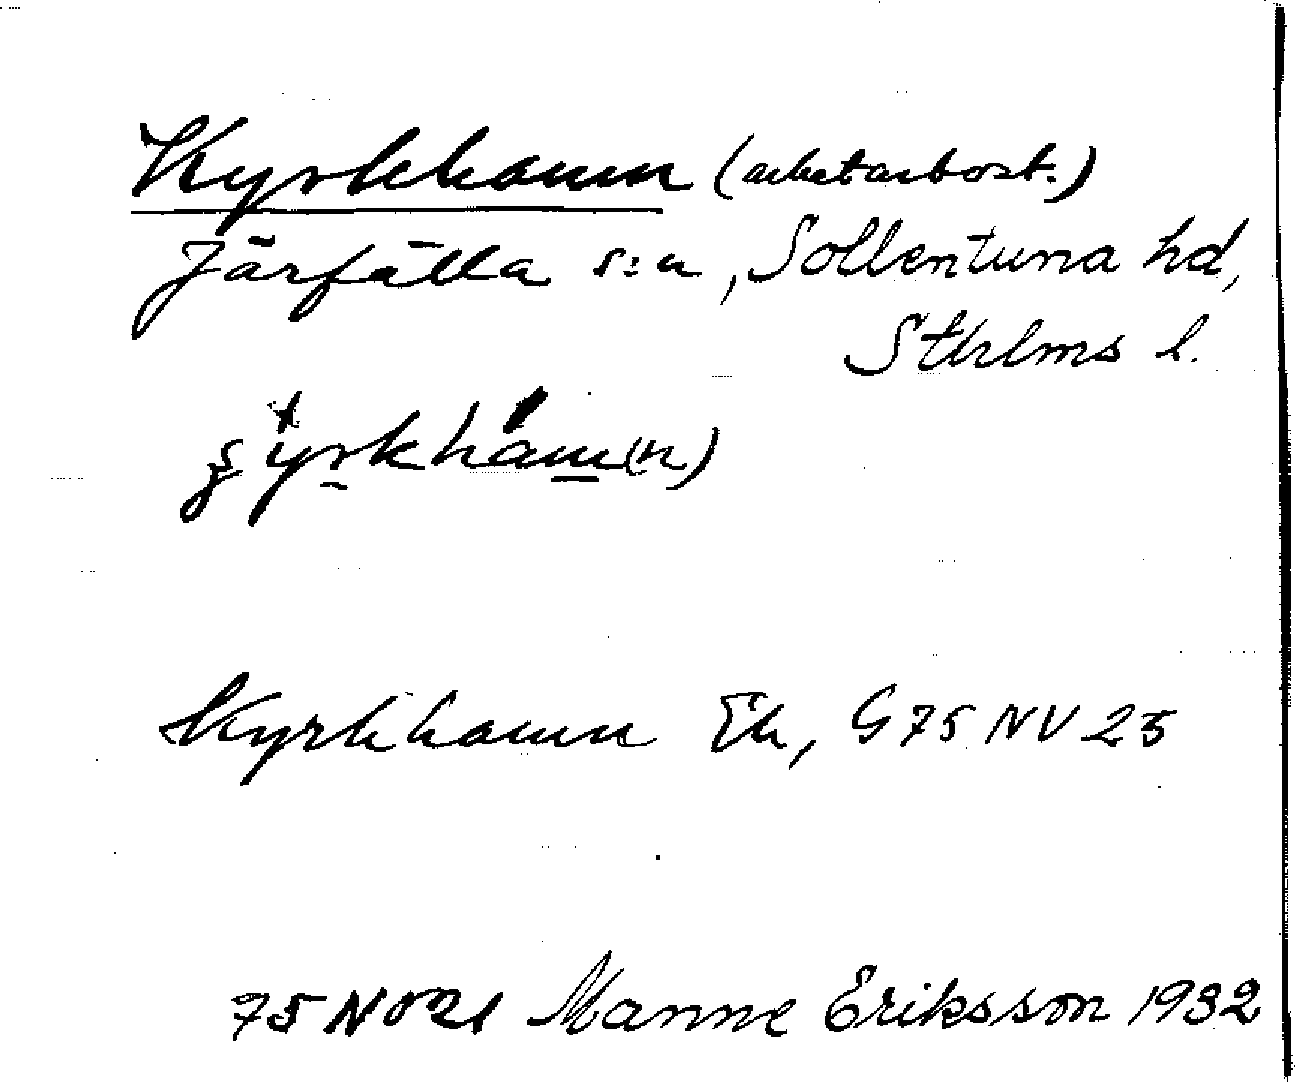 Kyrkhamn (arbetarbost.)
Järfälla s:n, Sollentuna hd,
Sthlms l.
Kyrkhamn Ek, G 75 NV 25
75 NV 21 Manne Eriksson 1932